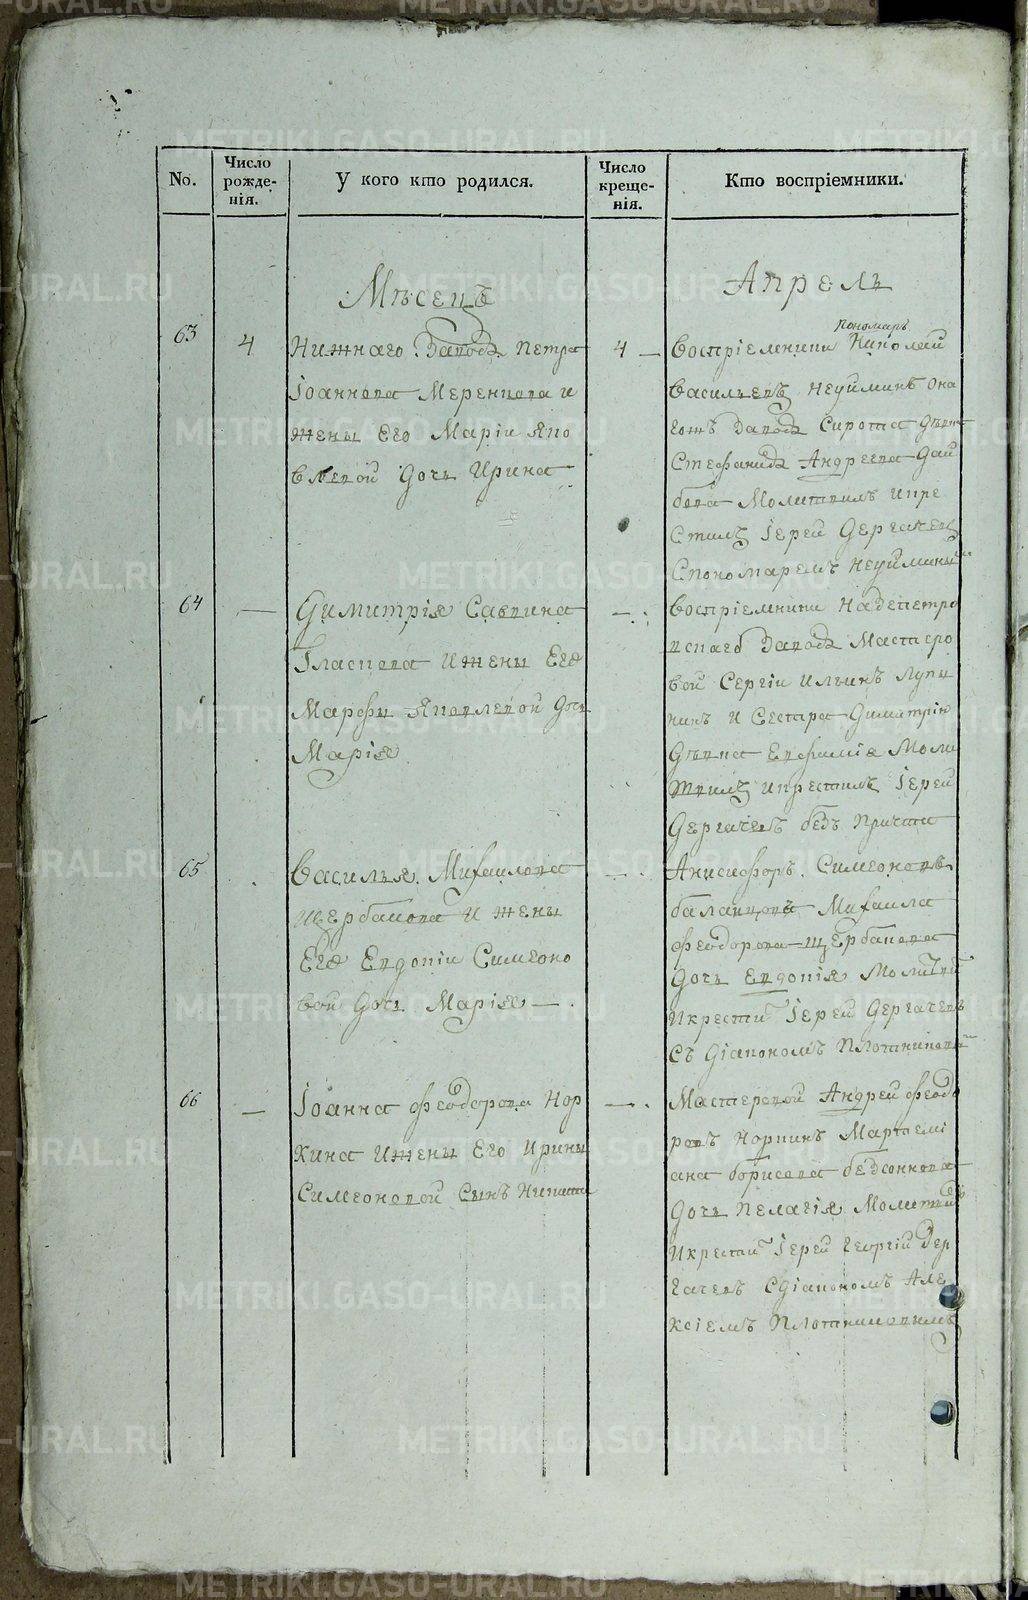 No.
Число рожде-нія.
У кого кто родился.
Число креще-нія.
Кто воспріемники.
Мѣсецъ
Апрель
63
4
Нижнаго Завода Петра
Іоаннова Меренкова и
жены Его Маріи Яко
влевой Дочь Ирина
4
пономарь
Воспріемники Николай
Васильевъ Неуйминъ она
гожъ Завода Сирота Дѣвка
Стефанида Андреева
бова Молитвилъ икре
стилъ Іерей Дергачевъ
Спономаремъ Неуйминым
64
Димитрія Саввина
Власкова Ижены Его
Марфы Яковлевой Дочь
Марія
Воспріемники Надепетро
вскаго Завода Мастеро
вой Сергіи Ильинъ Лупи
нинъ и Сестра Димитрія
Дѣвка Евфимія Моли
твилъ икрестилъ Іерей
Дергачевъ безъ Причта
65
Василья Михаилова
Щербакова и жены
Его Евдокіи Симеоно
вой Дочь Марія
Анисифоръ Симеоновъ
баландовъ Михаила
Феодорова Щербакова
Дочь Евдокія Молитвил
Икрести Іерей Дергачевъ
Съ Діакономъ Плотниковым
66
Іоанна Феодорова Нор
кина Ижены Его Ирины
Симеоновой Сынъ Никита
Мастеровой Андрей Феодо
ровъ Норкинъ Мартемі
ана борисова бедсоннова
Дочь Пелагія Молитвил
Икрестил Іерей Георгій Дер
гачевъ Сдіакономъ Але
ксіемъ Плотниковымъ